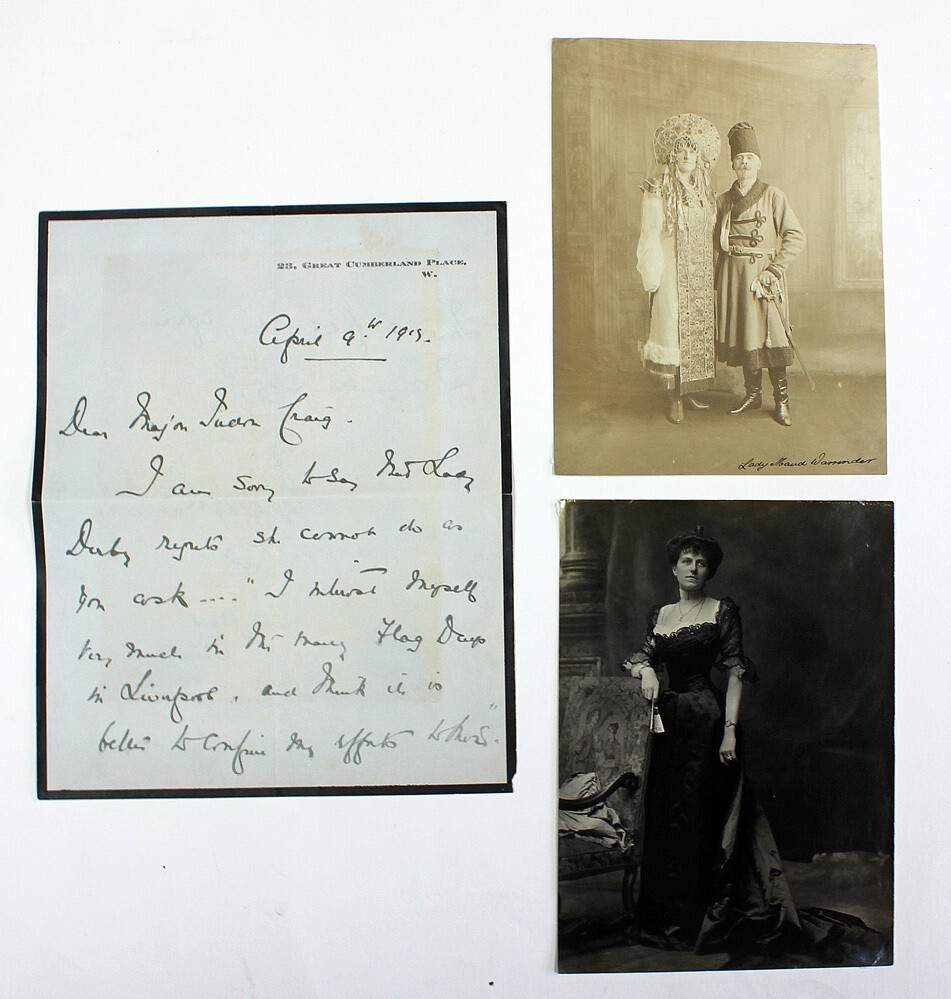 23, GREAT CUMBERLAND PLACE,
W.
April 9th 1919.
Dear Major Tudor Craig.
I am sorry to say that Lady
Derby regrets she cannot do as
you ask .... "I interest myself
very much in the many Flag Days
in Liverpool, and think it is
better to confine my efforts to those"
Lady Maud Warrender